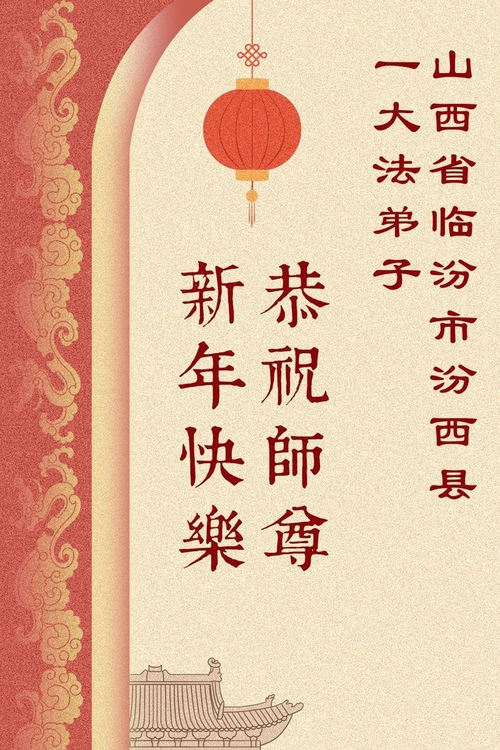 山西省临汾市汾西县
一大法弟子
恭祝師尊
新年快樂